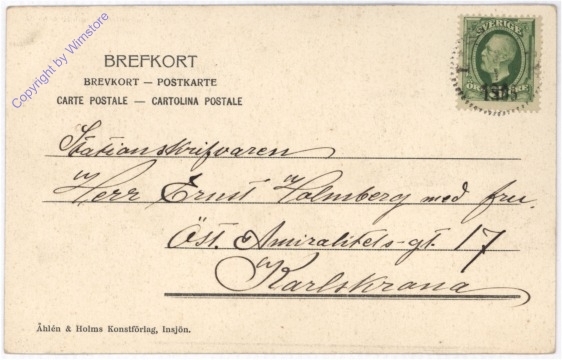 Copyright by Wimstore
BREFKORT
BREVKORT — POSTKARTE
CARTE POSTALE — CARTOLINA POSTALE
SVERIGE
Stationskrifvaren
Herr Ernst Holmberg med fru.
Öst. Amiralitets-gt. 17
Karlskrona
Åhlén & Holms Konstförlag, Insjön.